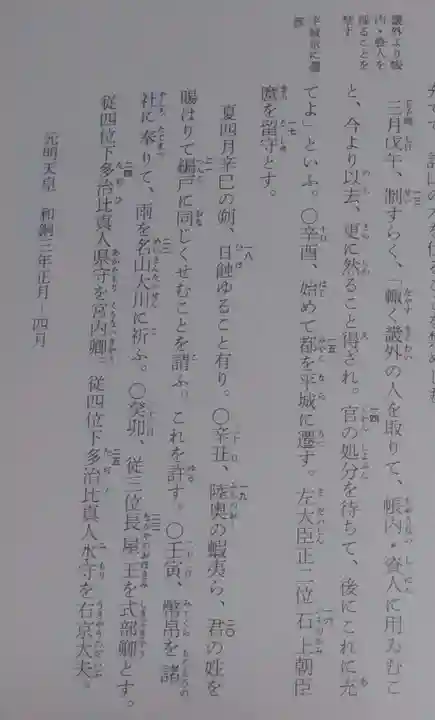 畿外より帳
内・資人を
採ることを
禁す
平城京に遷
都
三月戊午、制すらく、「輙く畿外の人を取りて、帳内・資人に用ゐむこ
と、今より以去、更に然ること得され。官の処分を待ちて、後にこれに充
てよ」といふ。〇辛酉、始めて都を平城に遷す。左大臣正二位石上朝臣
麿を留守とす。
夏四月辛巳の朔、日蝕ゆること有り。〇辛丑、陸奥の蝦夷ら、君の姓を
賜はりて編戸に同じくせむことを請ふ。これを許す。〇壬寅、幣帛を諸
社に奉りて、雨を名山大川に祈ふ。〇癸卯、従三位長屋王を式部卿とす。
従四位下多治比真人県守を宮内卿。従四位下多治比真人水守を右京大夫。
元明天皇 和銅三年正月―四月